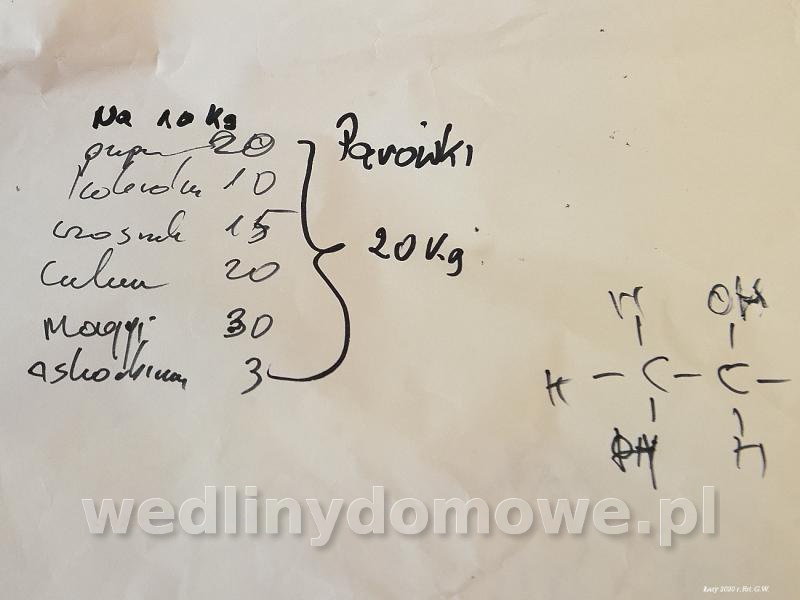 Na 10 Kg
20
10
czosnek 15
cukier 20
Maggi 30
askorbinian 3
Parówki
20 Kg
H OH
H - C - C -
OH H
wedlinydomowe.pl
Łazy 2020 r. Fot. G.W.